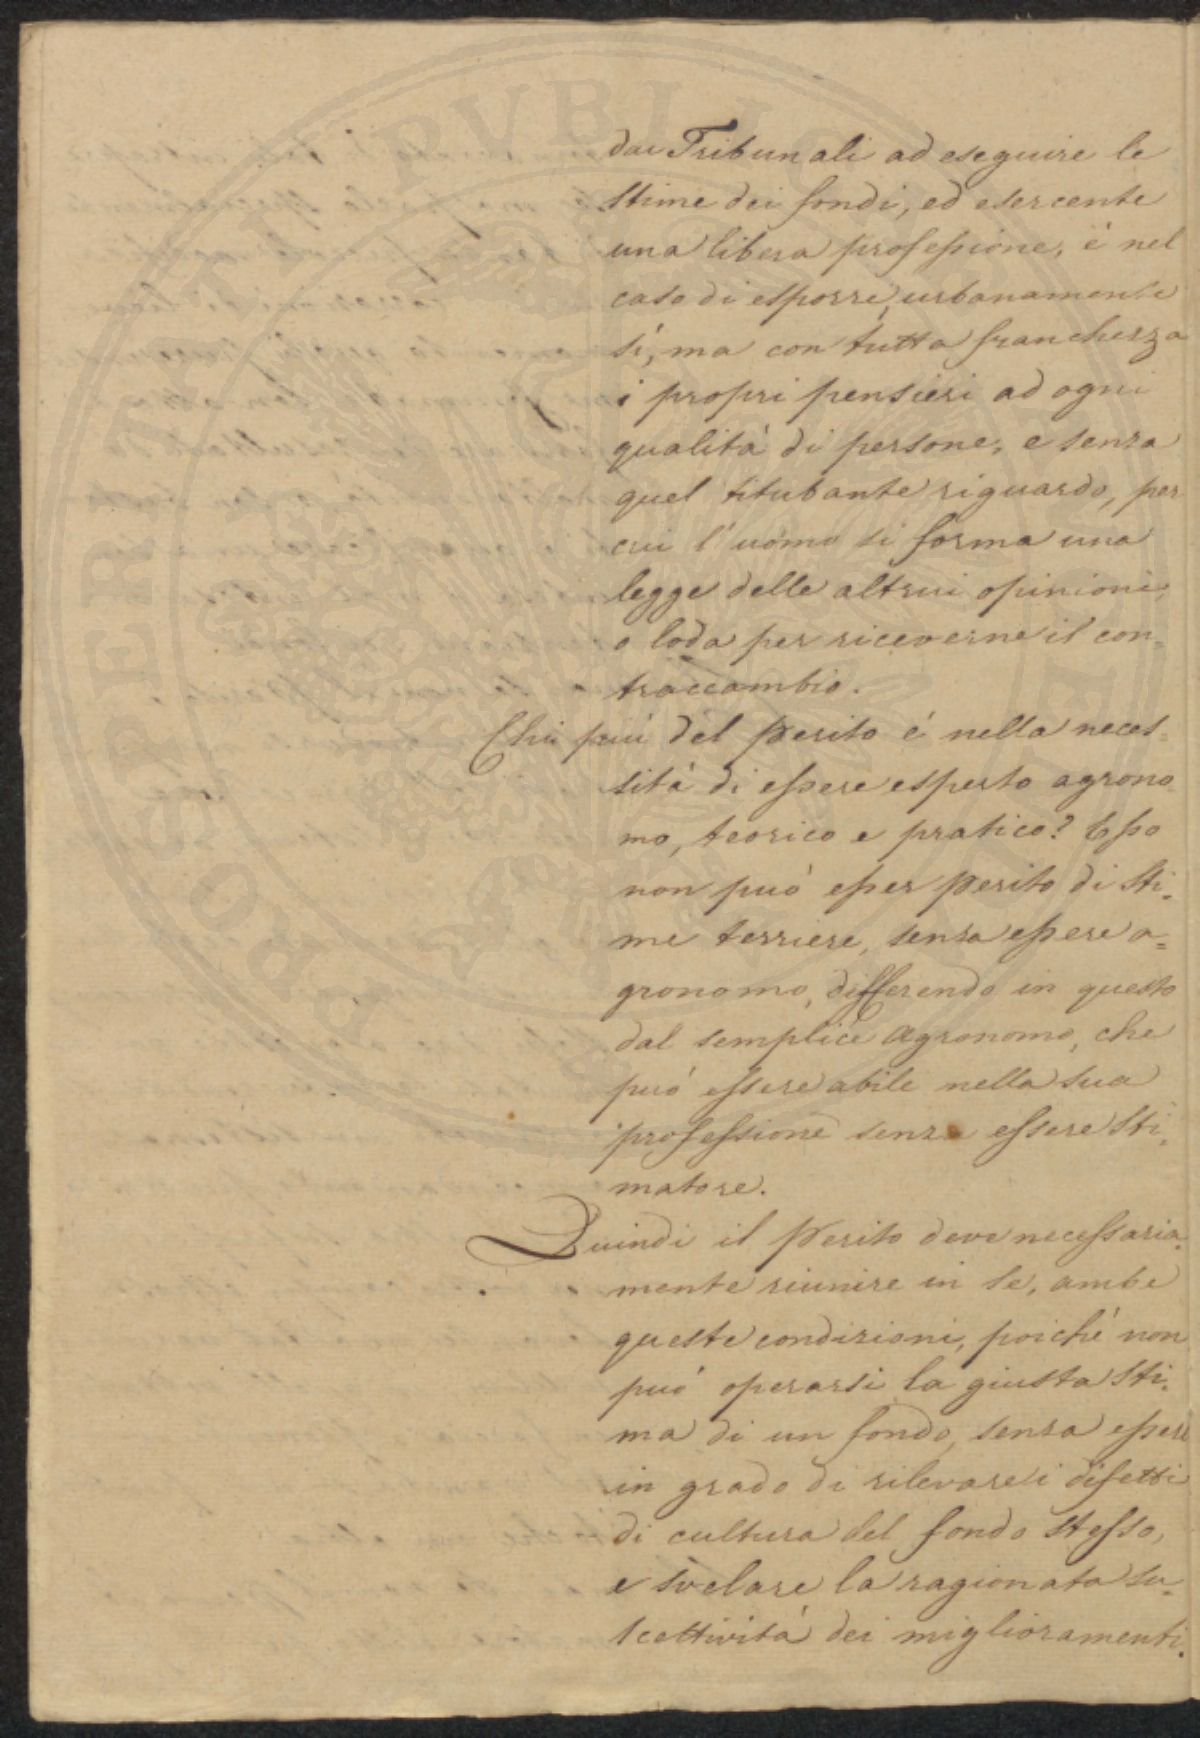 dai Tribunali ad eseguire le
stime dei fondi, ed esercente
una libera professione, é nel
caso di esporre, urbanamente
sí, ma con tutta franchezza
i proprj pensieri ad ogni
qualitá di persone, e senza
quel titubante riguardo, per
cui l'uomo si forma una
legge delle altrui opinioni,
o loda per riceverne il con=
traccambio.
Chi piú del Perito é nella neces=
sitá di essere esperto agrono
mo, teorico e pratico? Esso
non puó esser Perito di sti=
me terriere, senza essere a=
gronomo, differendo in questo
dal semplice Agronomo, che
puó essere abile nella sua
professione senza essere sti=
matore.
Quindi il Perito deve necessaria=
mente riunire in se, ambe
queste condizioni, poiché non
puó operarsi la giusta sti=
ma di un fondo, senza essere
in grado di rilevare i difetti
di cultura del fondo stesso,
e svelare la ragionata su=
scettivitá dei miglioramenti.
PROSPERITATI PVBLICAE